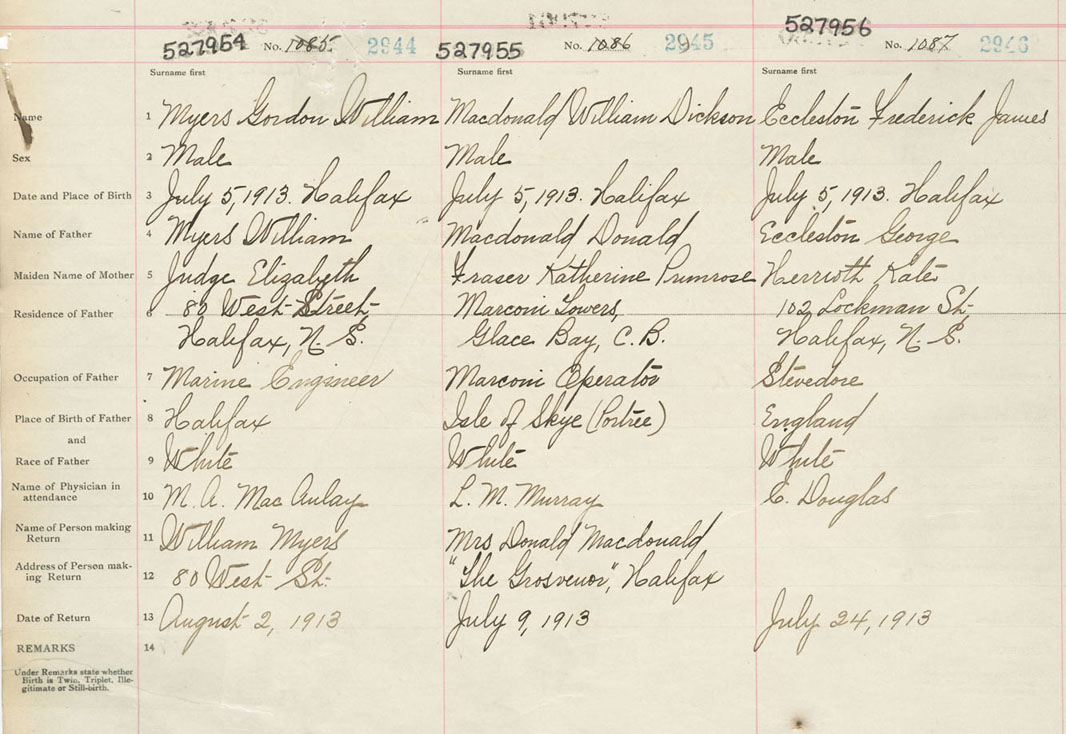 527954 No. 1085 2944 527955 No. 1086 2945 527956 No. 1087 2946
Surname first Surname first Surname first
Name 1 Myers Gordon William Macdonald William Dickson Eccleston Frederick James
Sex 2 Male Male Male
Date and Place of Birth 3 July 5, 1913. Halifax July 5, 1913. Halifax July 5, 1913. Halifax
Name of Father 4 Myers William Macdonald Donald Eccleston George
Maiden Name of Mother 5 Judge Elizabeth Fraser Katherine Primrose Herrioth Kate
Residence of Father 6 80 West Street, Marconi Towers, 102 Lockman St,
Halifax, N. S. Glace Bay, C. B. Halifax, N. S.
Occupation of Father 7 Marine Engineer Marconi Operator Stevedore
Place of Birth of Father 8 Halifax Isle of Skye (Portree) England
and
Race of Father 9 White White White
Name of Physician in
attendance 10 M. A. MacAulay L. M. Murray C. Douglas
Name of Person making
Return 11 William Myers Mrs Donald Macdonald
Address of Person mak-
ing Return 12 80 West St. "The Grosvenor", Halifax
Date of Return 13 August 2, 1913 July 9, 1913 July 24, 1913
REMARKS 14
Under Remarks state whether
Birth is Twin, Triplet, Ille-
gitimate or Still-birth.